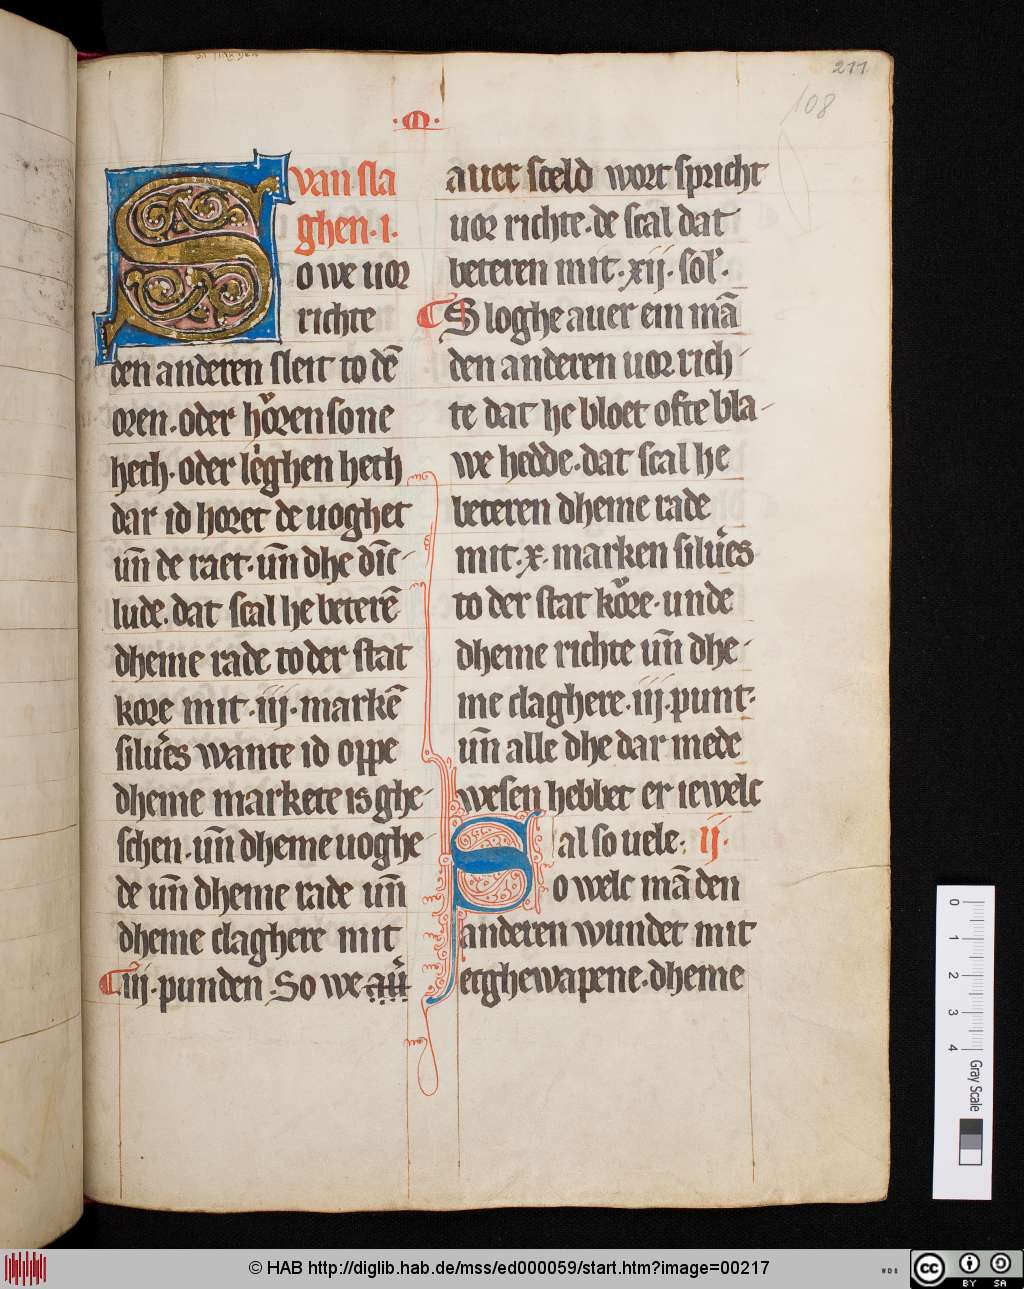 211
108
·M·
van sla
ghen·i·
So we uor
richte
den anderen sleit to dē
oren·oder hoͮren sone
heth·oder leͥghen heth
dar id horet de uoghet
un̄ de raet·un̄ dhe din̄c-
lude·dat scal he beterē
dheme rade to der stat
kore mit·iij·markē
siluͥes wante id oppe
dheme markete is ghe-
schen·un̄ dheme uoghe-
de un̄ dheme rade un̄
dheme claghere mit
iij·punden·So we auͥ
auet sceld wort spricht
uor richte·de scal dat
beteren mit·xij·sol̕·
Sloghe auer ein mā
den anderen uor rich-
te dat he bloet ofte bla-
we hedde·dat scal he
beteren dheme rade
mit·x·marken siluͥes
to der stat koͮre·unde
dheme richte un̄ dhe-
me claghere·iij·punt·
un̄ alle dhe dar mede
wesen hebbet er iewelc
al so uele· ij·
So welc mā den
anderen wundet mit
etghewapene·dheme
0 1 2 3 4 Gray Scale
© HAB http://diglib.hab.de/mss/ed000059/start.htm?image=00217
WDB
cc BY SA